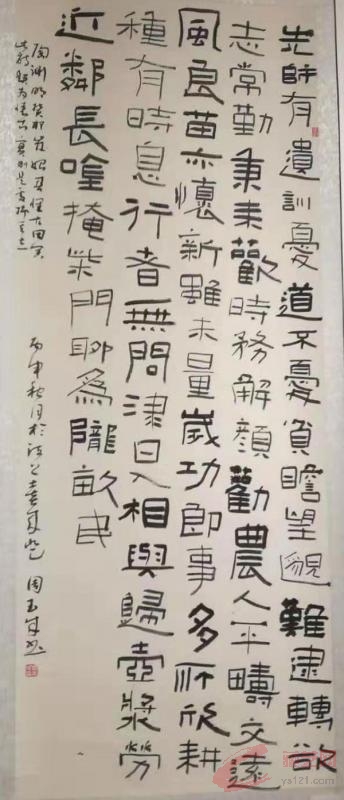 先師有遺訓憂道不憂貧瞻望邈難逮轉欲
志常勤秉耒歡時務解顏勸農人平疇交遠
風良苗亦懷新雖未量歲功即事多所欣耕
種有時息行者無問津日入相與歸壺漿勞
近鄰長唫掩柴門聊爲隴畝民
陶淵明癸卯歲始春懷古田舍
丙申秋月於
周玉
ys121.com